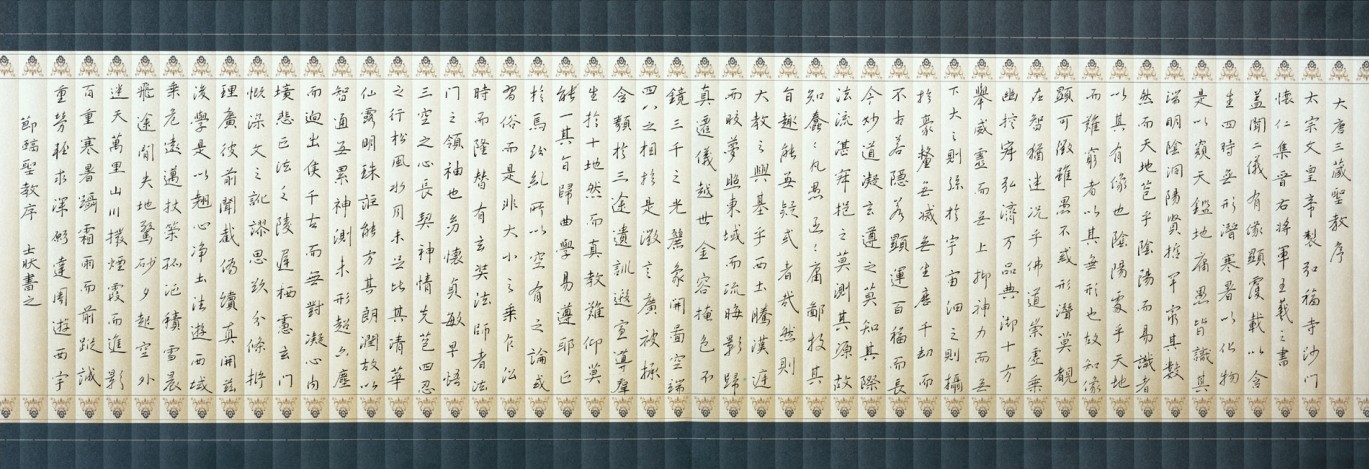 大唐三藏聖教序
太宗文皇帝製弘福寺沙門
懷仁集晉右將軍王羲之書
蓋聞二儀有像顯覆載以含
生四時無形潛寒暑以化物
是以窺天鑑地庸愚皆識其
端明陰洞陽賢哲罕窮其數
然而天地苞乎陰陽而易識者
以其有像也陰陽處乎天地
而難窮者以其無形也故知像
顯可徵雖愚不惑形潛莫覩
在智猶迷況乎佛道崇虛乘
幽控寂弘濟万品典御十方
舉威靈而無上抑神力而無
下大之則彌於宇宙細之則攝
於豪釐無滅無生歷千劫而
不古若隱若顯運百福而長
今妙道凝玄遵之莫知其際
法流湛寂挹之莫測其源故
知蠢々凡愚區々庸鄙投其
旨趣能無疑或者哉然則
大教之興基乎西土騰漢庭
而皎夢照東域而流晦影歸
真遷儀越世金容掩色不
鏡三千之光麗象開圖空端
四八之相於是微言廣被拯
含類於三途遺訓遐宣導群
生於十地然而真教難仰莫
能一其旨歸曲學易遵邪正
於焉紛糺所以空有之論或
習俗而是非大小之乘乍沿
時而隆替有玄奘法師者法
門之領袖也幼懷貞敏早悟
三空之心長契神情先苞四忍
之行松風水月未足比其清華
仙露明珠詎能方其朗潤故以
智通無累神測未形超六塵
而逈出隻千古而無對凝心內
境悲正法之陵遲栖慮玄門
慨深文之訛謬思欲分條析
理廣彼前聞截偽續真開茲
後學是以翹心淨土法遊西域
乘危遠邁杖策孤征積雪晨
飛途間失地驚砂夕起空外
迷天萬里山川撥煙霞而進影
百重寒暑躡霜雨而前蹤誠
重勞輕求深願達周遊西宇
節臨聖教序 士狀書之